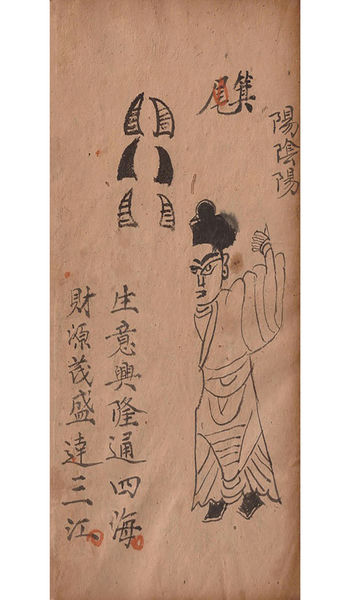 陽陰陽
箕尾
生意興隆通四海
財源茂盛達三江